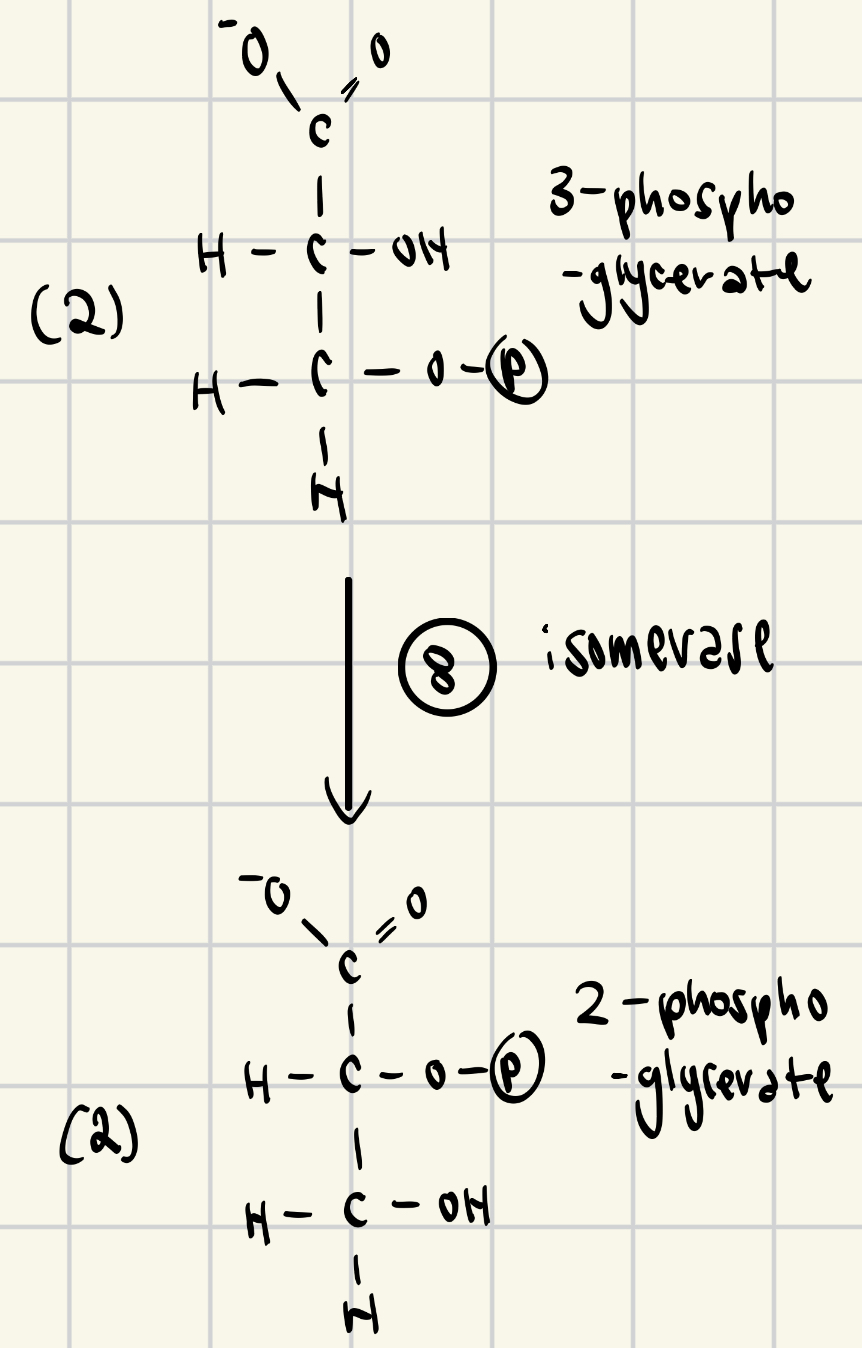 ⁻O O
C
3-phospho
H - C - OH
-glycerate
(2)
H - C - O - P
H
8 isomerase
⁻O O
C
2-phospho
H - C - O - P
-glycerate
(2)
H - C - OH
H